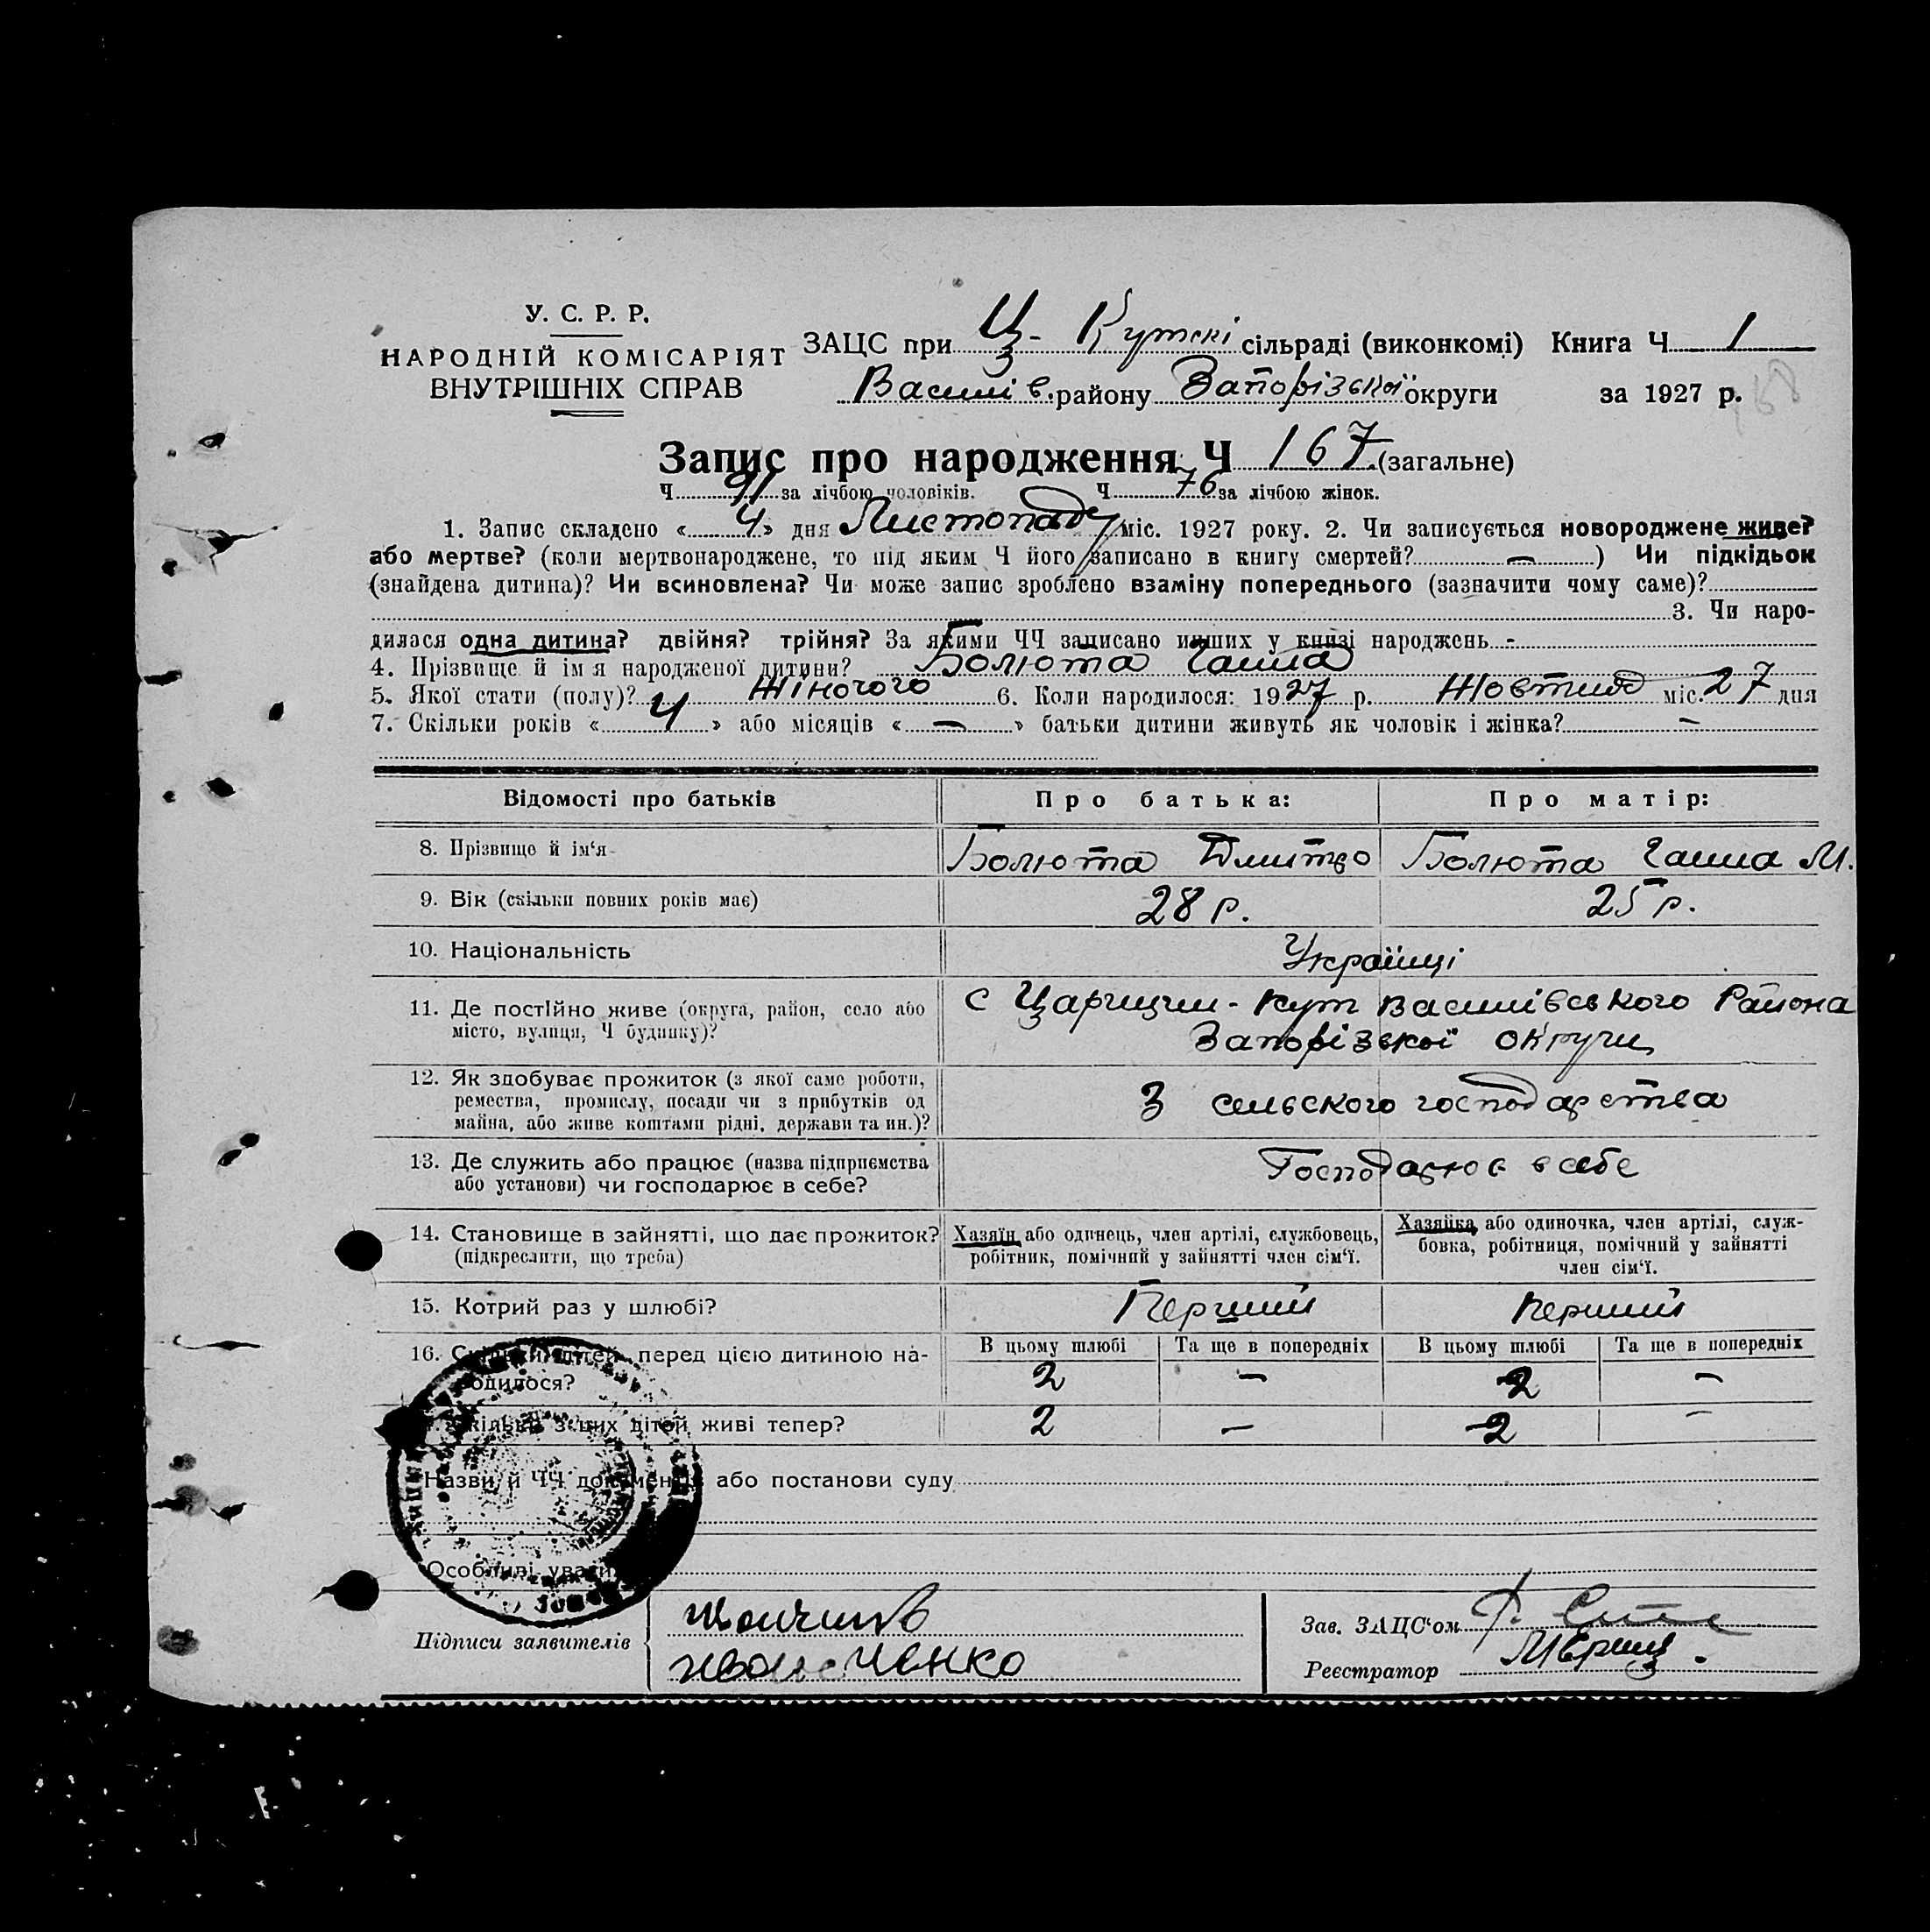 У. С. Р. Р.
НАРОДНІЙ КОМІСАРІЯТ
ВНУТРІШНІХ СПРАВ
ЗАЦС при Ц- Кутскі сільраді (виконкомі) Книга Ч 1
Василів. району Запорізької округи за 1927 р.
Запис про народження Ч 167 (загальне)
Ч 91 за лічбою чоловіків. Ч 76 за лічбою жінок.
1. Запис складено « 4 » дня Листопаду міс. 1927 року. 2. Чи записується новороджене живе?
або мертве? (коли мертвонароджене, то під яким Ч його записано в книгу смертей? — ) Чи підкідьок
(знайдена дитина)? Чи всиновлена? Чи може запис зроблено взаміну попереднього (зазначити чому саме)?
3. Чи наро-
дилася одна дитина? двійня? трійня? За якими ЧЧ записано инших у книзі народжень -
4. Прізвище й ім я народженої дитини? Болюта Ганна
5. Якої стати (полу)? Жіночого 6. Коли народилося: 1927 р. Жовтня міс. 27 дня
7. Скільки років « 4 » або місяців « — » батьки дитини живуть як чоловік і жінка? —
Відомості про батьків Про батька: Про матір:
8. Прізвище й ім‘я Болюта Дмитро Болюта Ганна М.
9. Вік (скільки повних років має) 28 р. 25 р.
10. Національність Українці
11. Де постійно живе (округа, район, село або с Царицин-Кут Василівського Района
місто, вулиця, Ч будинку)? Запорізької округи
12. Як здобуває прожиток (з якої саме роботи,
ремества, промислу, посади чи з прибутків од З сельского господарства
майна, або живе коштами рідні, держави та ин.)?
13. Де служить або працює (назва підприємства Господарює в себе
або установи) чи господарює в себе?
14. Становище в зайнятті, що дає прожиток? Хазяїн або одинець, член артілі, службовець, Хазяйка або одиночка, член артілі, служ-
(підкреслити, що треба) робітник, помічний у зайнятті член сім‘ї. бовка, робітниця, помічний у зайнятті
член сім‘ї.
15. Котрий раз у шлюбі? Перший Перший
В цьому шлюбі Та ще в попередніх В цьому шлюбі Та ще в попередніх
16. Скільки дітей перед цією дитиною на-
родилося? 2 — 2 —
Скільки з цих дітей живі тепер? 2 — 2 —
Назви й ЧЧ документів або постанови суду
Особливі уваги
Підписи заявителів
Зав. ЗАЦС‘ом
Реєстратор